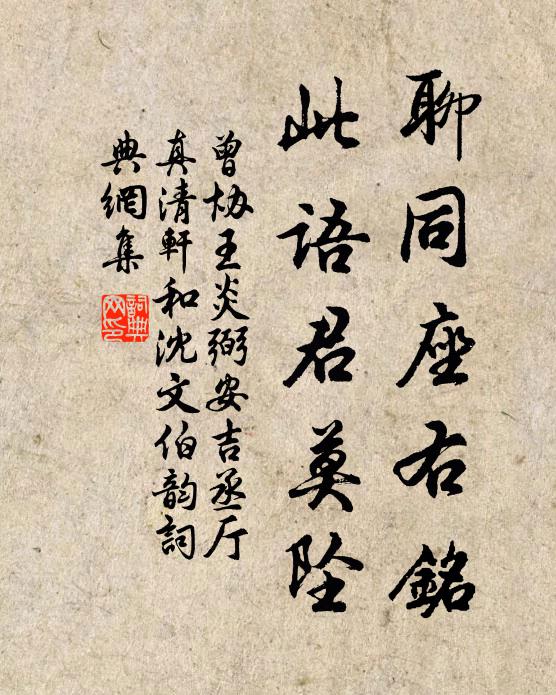 聊同座右銘
此語君莫墜
曾协王炎弼安吉丞厅
真清軒和沈文伯韵詞
典網集
詞典網印